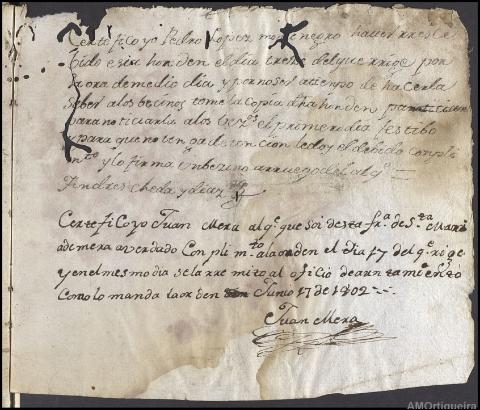 Certefico yo Pedro Lopez montenegro haver rrece
bido esta horden el dia trece del que rrige por
la ora de medio dia y por no ser atiempo de hacerla
saber alos becinos tome la copia dha horden
para noticiarla alos vezs. el primero dia festibo
y para que no tenga detencion le doy el debido conpli
mto. y lo firma un bezino arruego del alqe.
Andres Cheda y diaz
Certefico yo Juan Mera alqe. que soi de esta fra. de Sta. Mari
ade mera aver dado Conplimto. ala orden el dia 17 del qe. rrige
y en el mesmo dia se la rremito al oficio de arntamiento
Como lo manda la orden Junio 17 de 1802
Juan Mera
AMOrtigueira